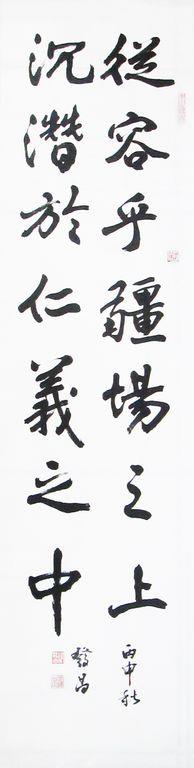 從容乎疆場之上
丙申秋
沉潛於仁義之中
發昌